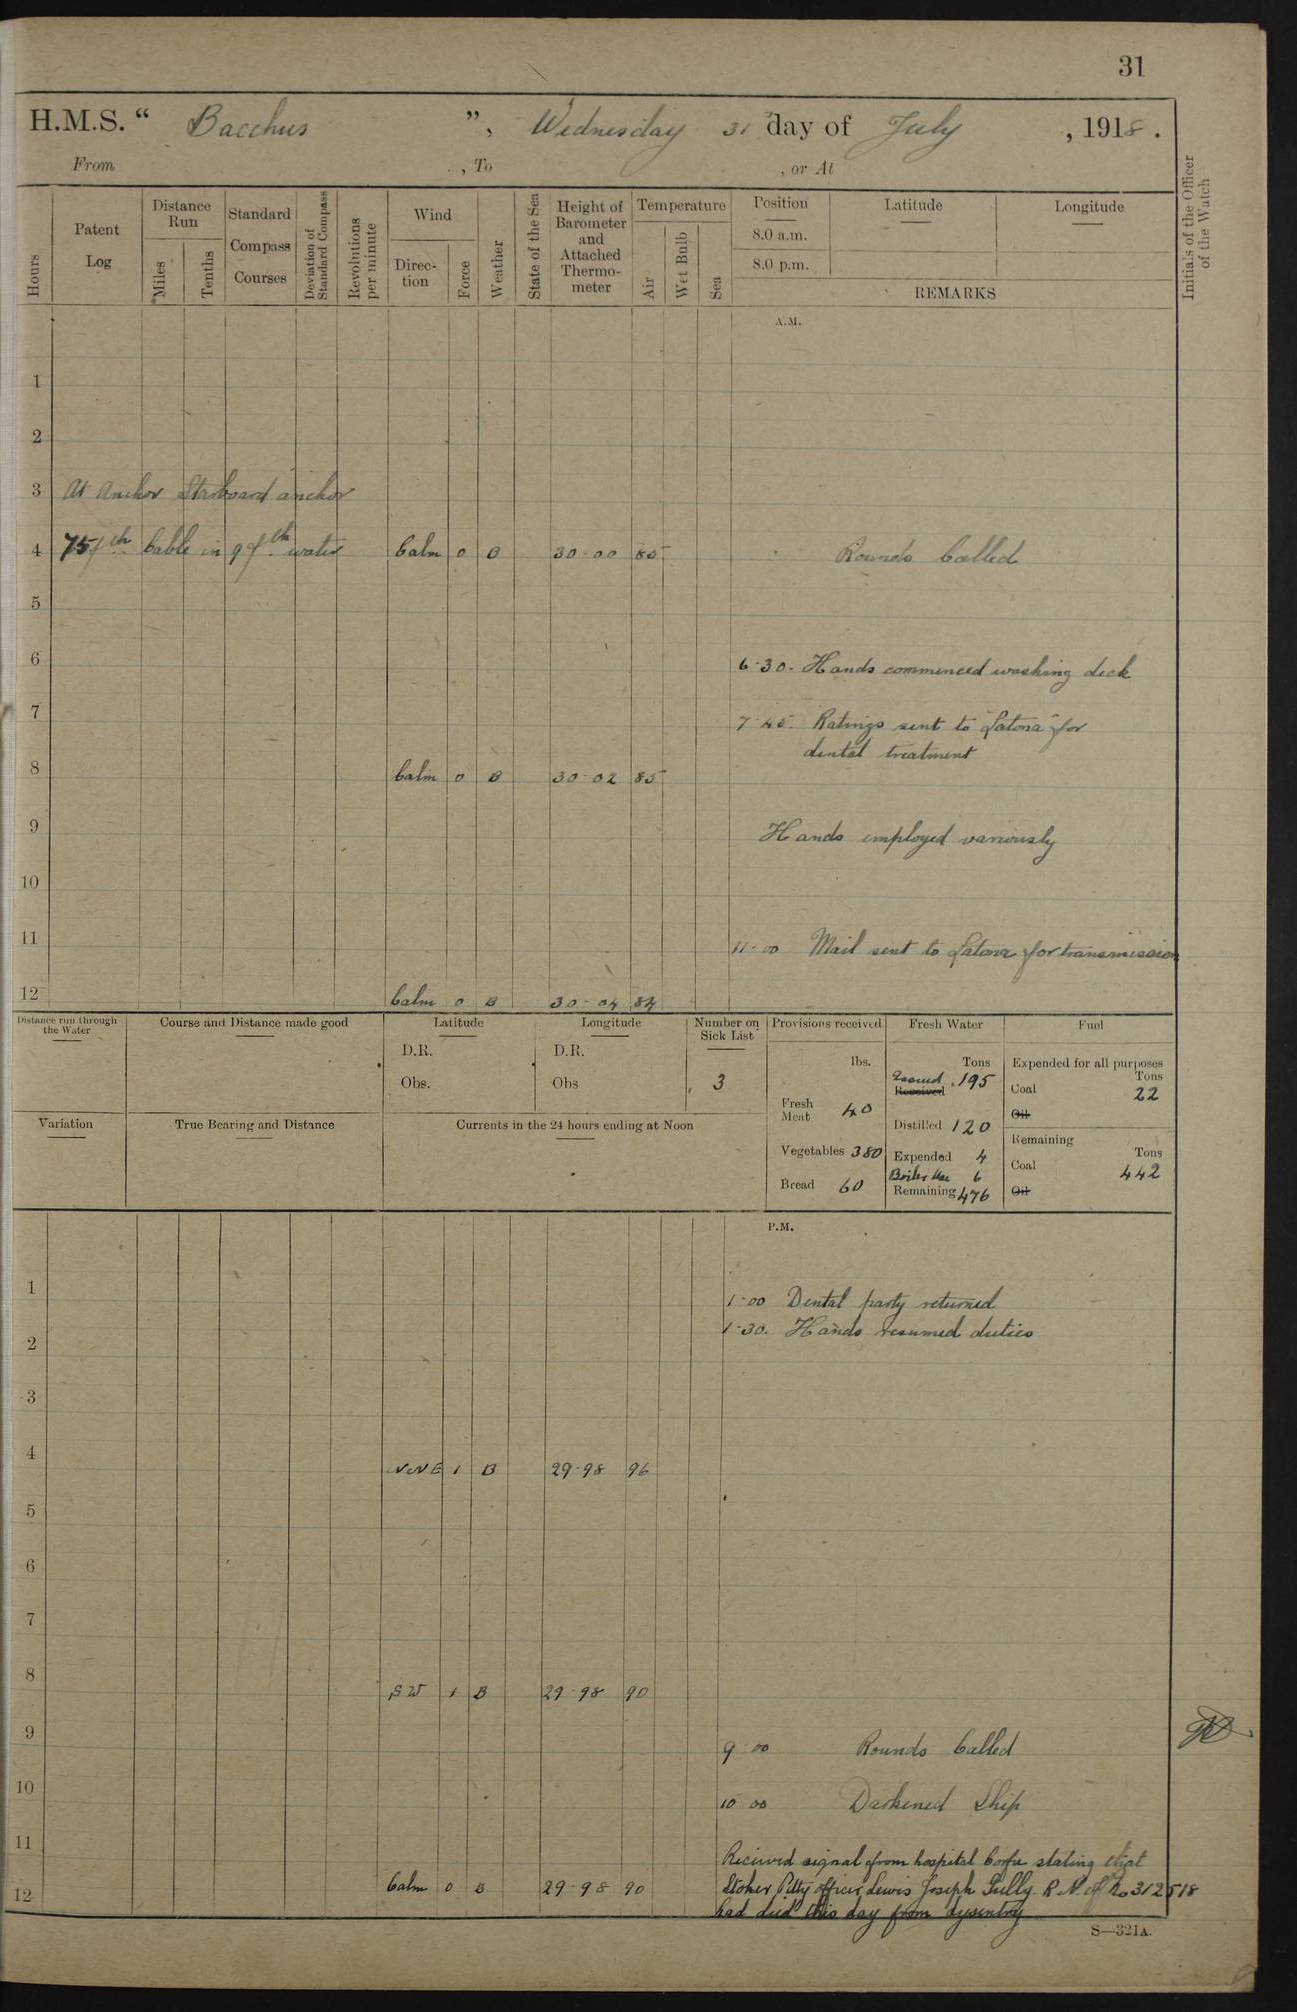 31
H.M.S. “ Bacchus ”, Wednesday 31 day of July , 1918.
From , To , or At
Hours
Patent Log
Distance Run
Miles
Tenths
Standard Compass Courses
Deviation of Standard Compass
Revolutions per minute
Wind
Direction
Force
Weather
State of the Sea
Height of Barometer and Attached Thermometer
Temperature
Air
Wet Bulb
Sea
Position Latitude Longitude
8.0 a.m.
8.0 p.m.
REMARKS
Initials of the Officer of the Watch
A.M.
1
2
3 At Anchor Starboard anchor
4 75 fth Cable in 9 fth water Calm 0 B 30-00 85 Rounds Called
5
6 6-30. Hands commenced washing deck
7 7-45. Ratings sent to "Latona" for
dental treatment
8 Calm 0 B 30-02 85
9 Hands employed variously
10
11 11-00 Mail sent to Latona for transmission
12 Calm 0 B 30-04 84
Distance run through the Water
Course and Distance made good
Latitude
D.R.
Obs.
Longitude
D.R.
Obs
Number on Sick List
3
Provisions received
lbs.
Fresh Meat 40
Vegetables 380
Bread 60
Fresh Water
Tons
Issued Received 195
Distilled 120
Expended 4
Boiler Use 6
Remaining 476
Fuel
Expended for all purposes
Tons
Coal 22
Oil
Remaining
Tons
Coal 442
Oil
Variation
True Bearing and Distance
Currents in the 24 hours ending at Noon
P.M.
1 1-00 Dental party returned
1-30. Hands resumed duties
2
3
4 NNE 1 B 29-98 96
5
6
7
8 SW 1 B 29-98 90
9 9-00 Rounds Called
10 10 00 Darkened Ship
11 Recieved signal from hospital Corfu stating that
12 Calm 0 B 29-98 90 Stoker Petty officer Lewis Joseph Gully R.N. of No 312518
had died this day from dysentry
S—321A.